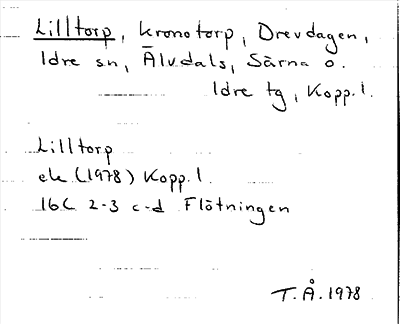 Lilltorp, kronotorp, Drevdagen,
Idre sn, Älvdals, Särna o.
Idre tg, Kopp. l.
Lilltorp
ek (1978) Kopp. l.
16C 2-3 c-d Flötningen
T. Å. 1978